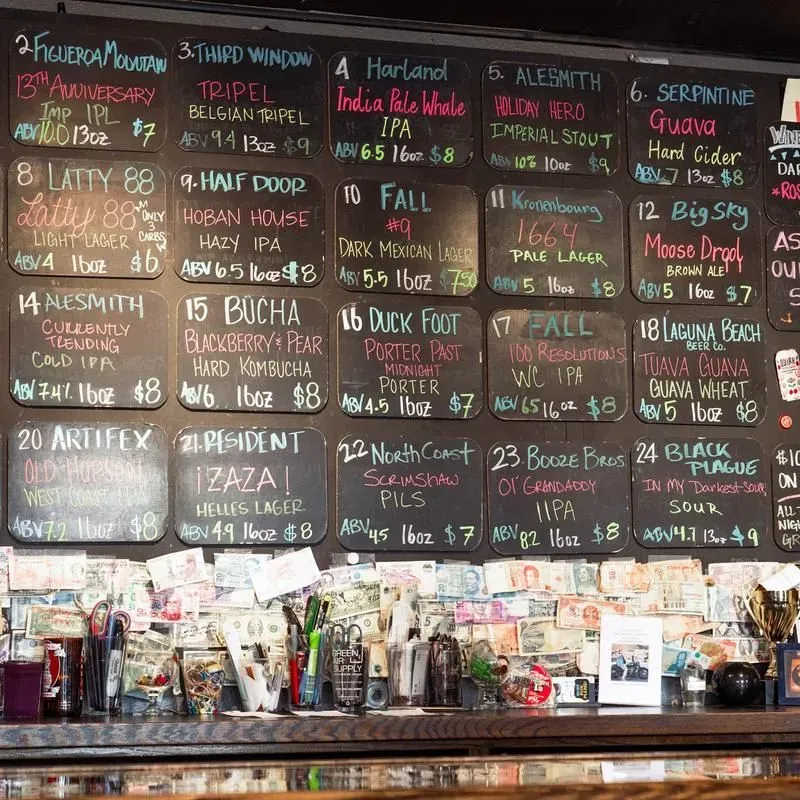 2 FIGUEROA MOUNTAIN
13TH ANNIVERSARY
IMP IPL
ABV 10.0 13oz $7
3. THIRD WINDOW
TRIPEL
BELGIAN TRIPEL
ABV 9.4 13oz $9
4 Harland
India Pale Whale
IPA
ABV 6.5 16oz $8
5. ALESMITH
HOLIDAY HERO
IMPERIAL STOUT
ABV 10% 10oz $9
6. SERPINTINE
Guava
Hard Cider
ABV 7 13oz $8
8 LATTY 88
Latty 88
ONLY 3 CARBS
LIGHT LAGER
ABV 4 16oz $6
9. HALF DOOR
HOBAN HOUSE
HAZY IPA
ABV 6.5 16oz $8
10 FALL
#9
DARK MEXICAN LAGER
ABV 5.5 16oz $7.50
11 Kronenbourg
1664
PALE LAGER
ABV 5 16oz $8
12 Big SKy
Moose Drool
BROWN ALE
ABV 5 16oz $7
14 ALESMITH
CURRENTLY
TRENDING
COLD IPA
ABV 7.4% 16oz $8
15 BUCHA
BLACKBERRY & PEAR
HARD KOMBUCHA
ABV 6 16oz $8
16 DUCK FOOT
PORTER PAST
MIDNIGHT
PORTER
ABV 4.5 16oz $7
17 FALL
100 RESOLUTIONS
WC IPA
ABV 6.5 16oz $8
18 LAGUNA BEACH
BEER CO.
TUAVA GUAVA
GUAVA WHEAT
ABV 5 16oz $8
20 ARTIFEX
OLD HOPSON
WEST COAST IPA
ABV 7.2 16oz $8
21. RESIDENT
¡ZAZA!
HELLES LAGER
ABV 4.9 16oz $8
22 NORTH COAST
SCRIMSHAW
PILS
ABV 4.5 16oz $7
23. BOOZE BROS
OL' GRANDADDY
IIPA
ABV 8.2 16oz $8
24 BLACK
PLAGUE
IN MY DARKEST SOUR
SOUR
ABV 4.7 13oz $9
GREEN
AIR
SUPPLY